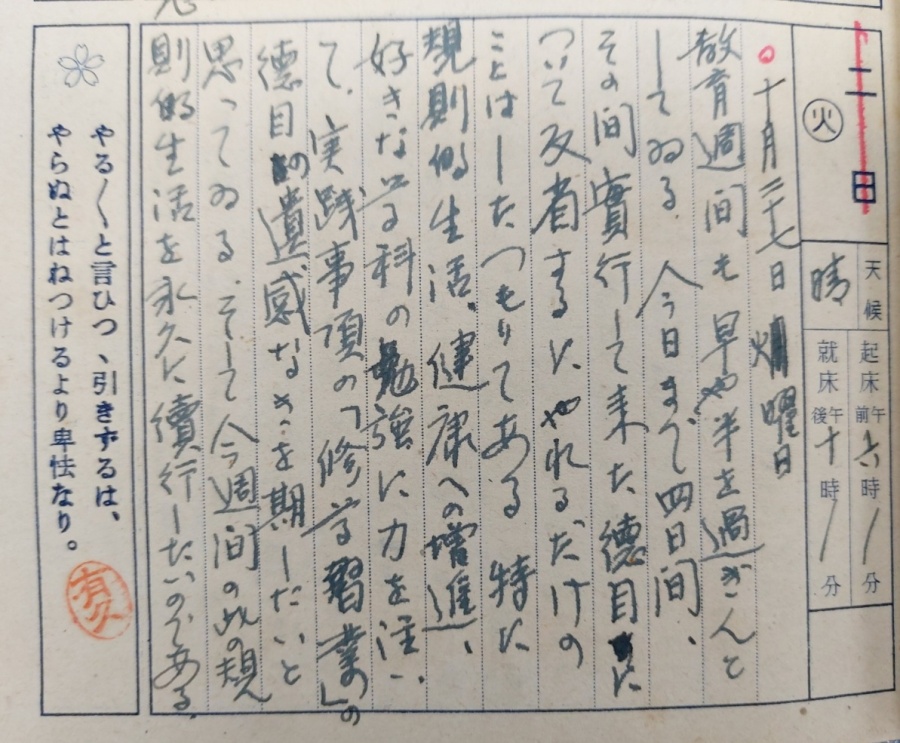 二日
㊋
天候
晴
起床 午前 六時 / 分
就床 午後 十時 / 分
。十月二十七日 火曜日
教育週間も早や半を過ぎんと
してゐる。今日まで四日間、
その間實行して来た徳目に
ついて反省するに、やれるだけの
ことはしたつもりである 特に
規則的生活、健康への増進、
好きな学科の勉強に力を注い
て、実践事項の「修学習業」の
徳目の遺感なきを期したいと
思ってゐる。そして今週間の此の規
則的生活を永久に續行したいのである。
やる〱と言ひつゝ、引きずるは、
やらぬとはねつけるより卑怯なり。
有久